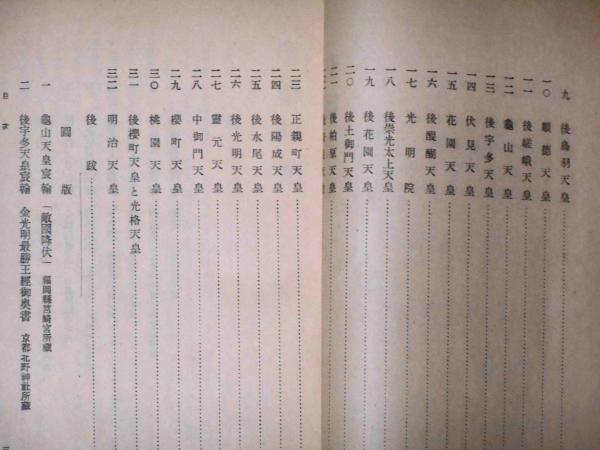 九 後鳥羽天皇
一〇 順德天皇
一一 後嵯峨天皇
一二 龜山天皇
一三 後宇多天皇
一四 伏見天皇
一五 花園天皇
一六 後醍醐天皇
一七 光明院
一八 後崇光太上天皇
一九 後花園天皇
二〇 後土御門天皇
二一 後柏原天皇
二三 正親町天皇
二四 後陽成天皇
二五 後水尾天皇
二六 後光明天皇
二七 靈元天皇
二八 中御門天皇
二九 櫻町天皇
三〇 桃園天皇
三一 後櫻町天皇と光格天皇
三二 明治天皇
後跋
圖版
一 龜山天皇宸翰 「敵國降伏」 福岡縣筥崎宮所藏
二 後宇多天皇宸翰 金光明最勝王經御奧書 京都北野神社所藏
目次
三